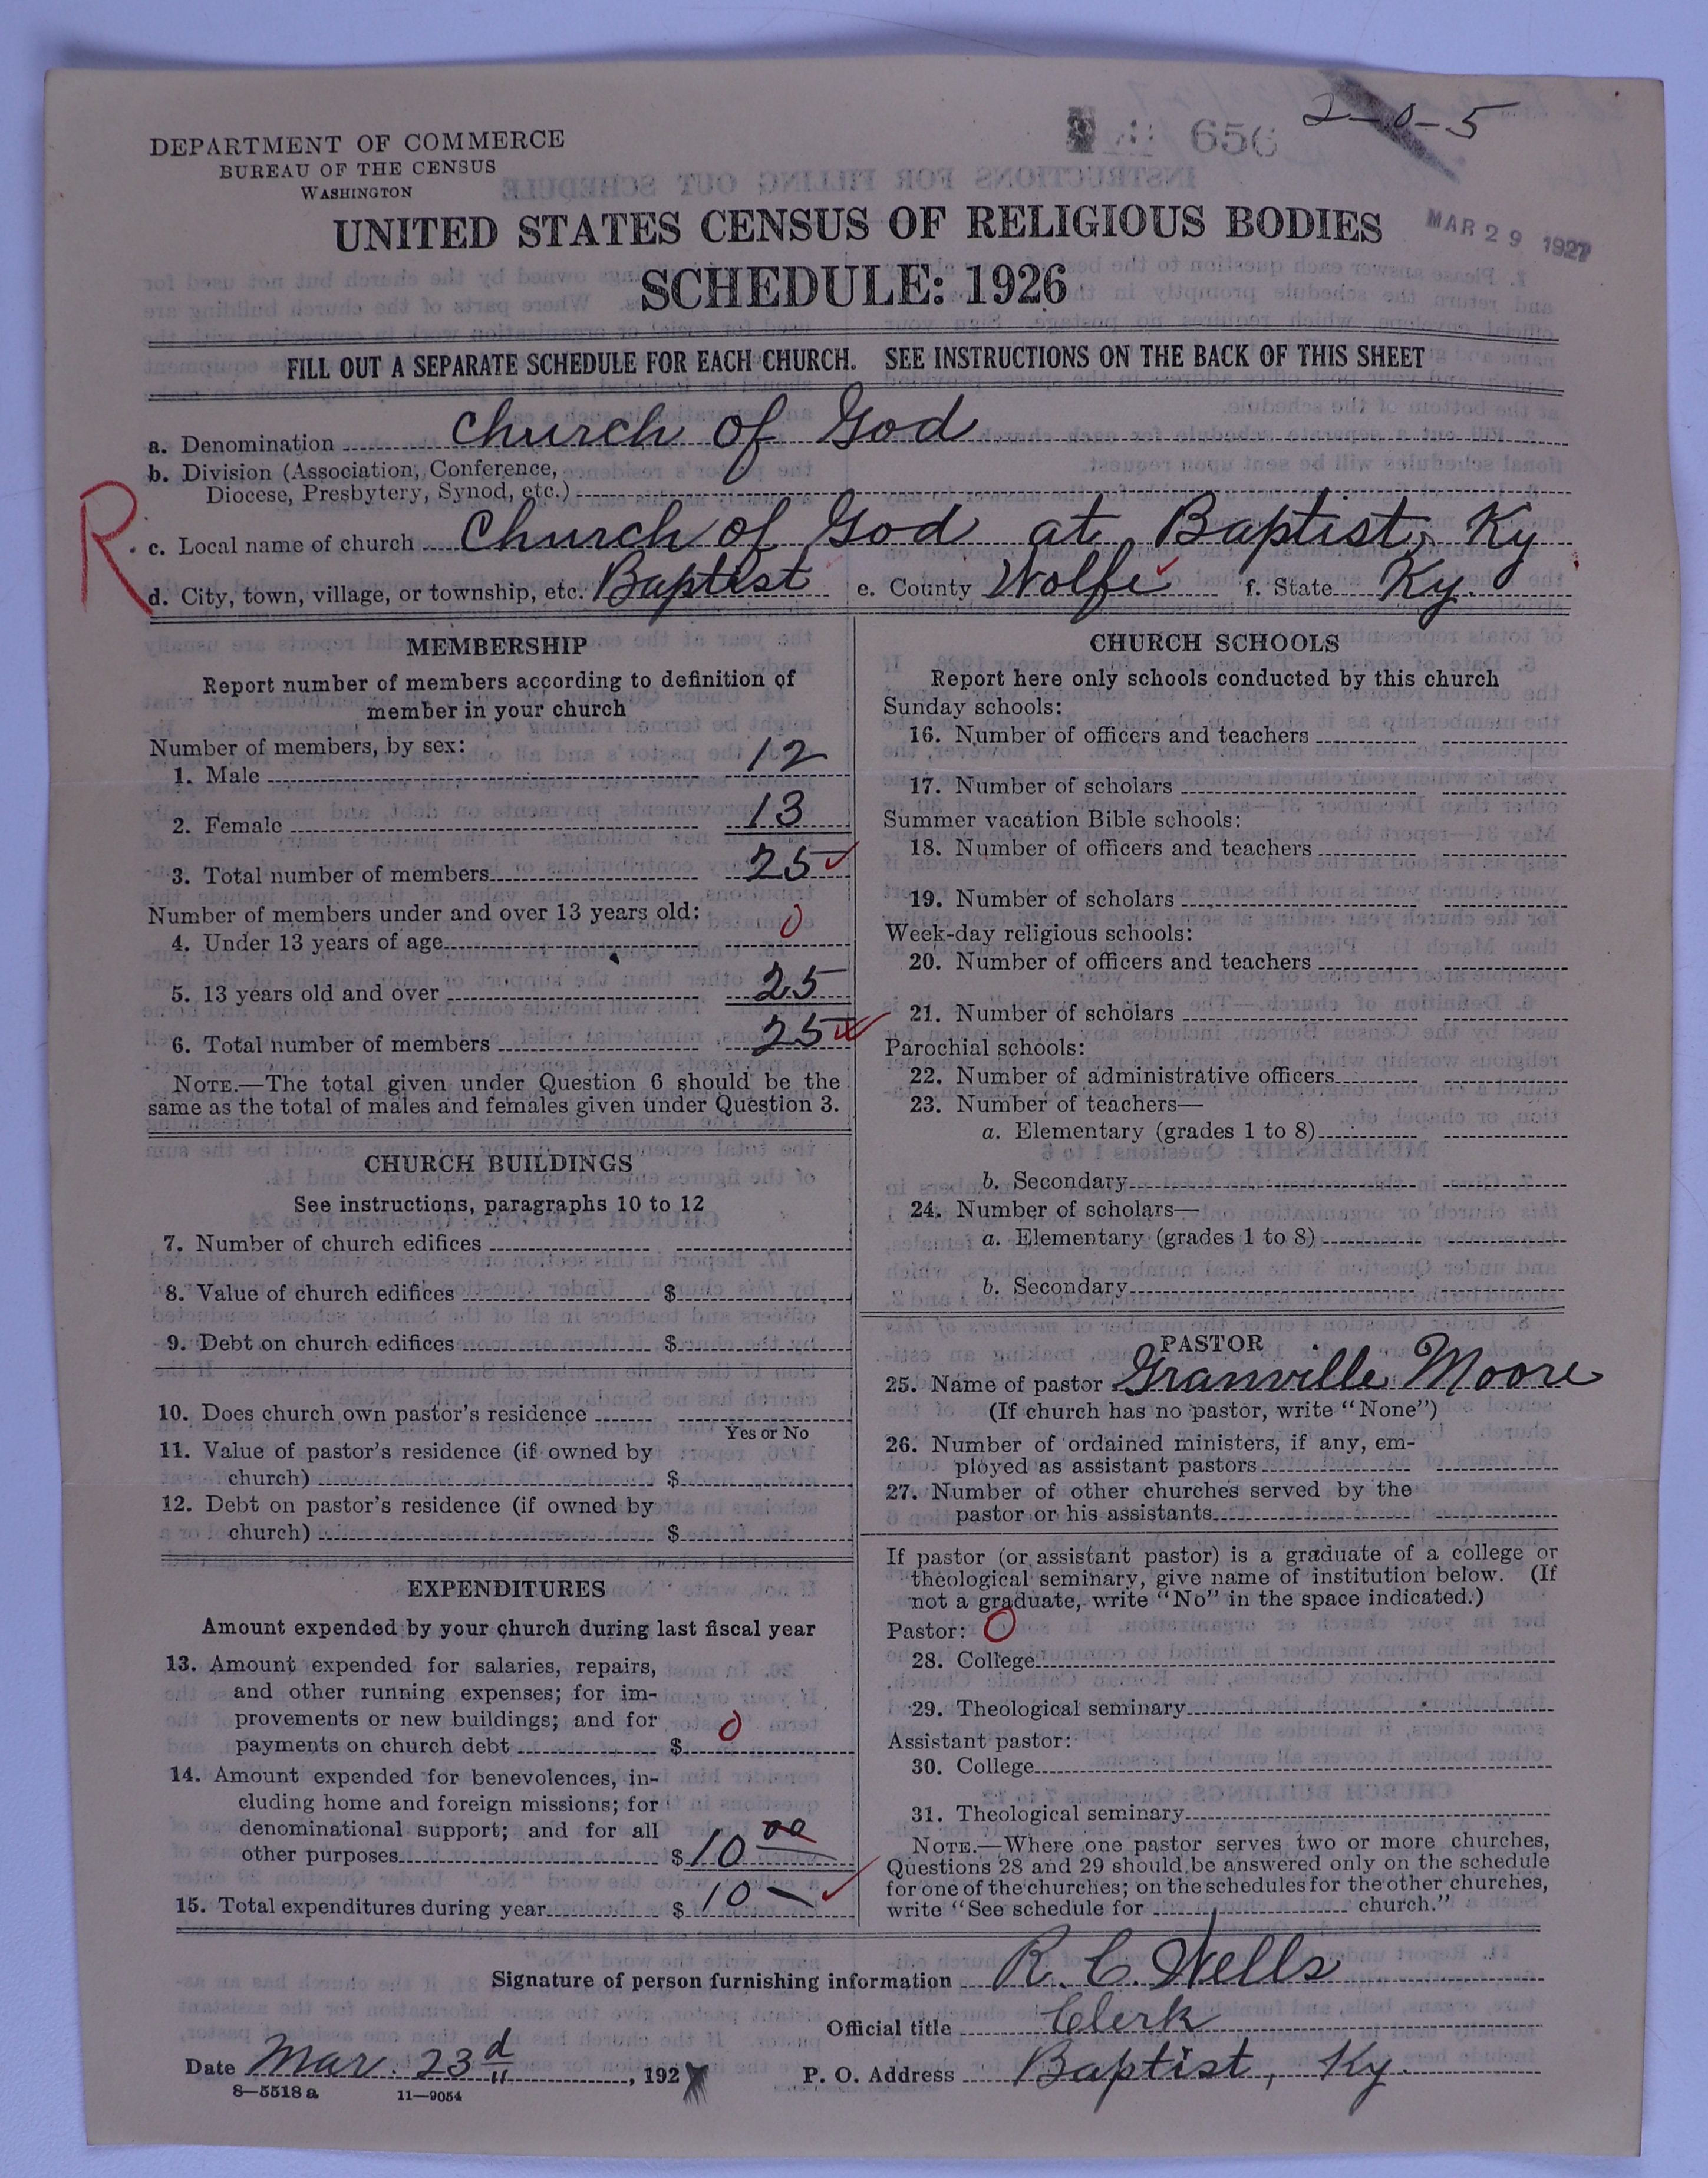 2-0-5
656
DEPARTMENT OF COMMERCE
BUREAU OF THE CENSUS
WASHINGTON
UNITED STATES CENSUS OF RELIGIOUS BODIES
MAR 29 1927
SCHEDULE: 1926
FILL OUT A SEPARATE SCHEDULE FOR EACH CHURCH. SEE INSTRUCTIONS ON THE BACK OF THIS SHEET
a. Denomination Church of God
b. Division (Association, Conference,
Diocese, Presbytery, Synod, etc.)
R
c. Local name of church Church of God at Baptist, Ky
d. City, town, village, or township, etc. Baptist e. County Wolfe f. State Ky.
MEMBERSHIP
Report number of members according to definition of
member in your church
Number of members, by sex:
1. Male 12
2. Female 13
3. Total number of members 25
Number of members under and over 13 years old:
4. Under 13 years of age 0
5. 13 years old and over 25
6. Total number of members 25
NOTE.—The total given under Question 6 should be the
same as the total of males and females given under Question 3.
CHURCH BUILDINGS
See instructions, paragraphs 10 to 12
7. Number of church edifices
8. Value of church edifices $
9. Debt on church edifices $
10. Does church own pastor's residence
Yes or No
11. Value of pastor's residence (if owned by
church) $
12. Debt on pastor's residence (if owned by
church) $
EXPENDITURES
Amount expended by your church during last fiscal year
13. Amount expended for salaries, repairs,
and other running expenses; for im-
provements or new buildings; and for
payments on church debt $ 0
14. Amount expended for benevolences, in-
cluding home and foreign missions; for
denominational support; and for all
other purposes $ 10 00
15. Total expenditures during year $ 10 —
CHURCH SCHOOLS
Report here only schools conducted by this church
Sunday schools:
16. Number of officers and teachers
17. Number of scholars
Summer vacation Bible schools:
18. Number of officers and teachers
19. Number of scholars
Week-day religious schools:
20. Number of officers and teachers
21. Number of scholars
Parochial schools:
22. Number of administrative officers
23. Number of teachers—
a. Elementary (grades 1 to 8)
b. Secondary
24. Number of scholars—
a. Elementary (grades 1 to 8)
b. Secondary
PASTOR
25. Name of pastor Granville Moore
(If church has no pastor, write "None")
26. Number of ordained ministers, if any, em-
ployed as assistant pastors
27. Number of other churches served by the
pastor or his assistants
If pastor (or assistant pastor) is a graduate of a college or
theological seminary, give name of institution below. (If
not a graduate, write "No" in the space indicated.)
Pastor: 0
28. College
29. Theological seminary
Assistant pastor:
30. College
31. Theological seminary
NOTE.—Where one pastor serves two or more churches,
Questions 28 and 29 should be answered only on the schedule
for one of the churches; on the schedules for the other churches,
write "See schedule for church."
Signature of person furnishing information R. C. Wells
Official title Clerk
Date Mar. 23d, 1927 P. O. Address Baptist, Ky.
8—5518a 11—9054